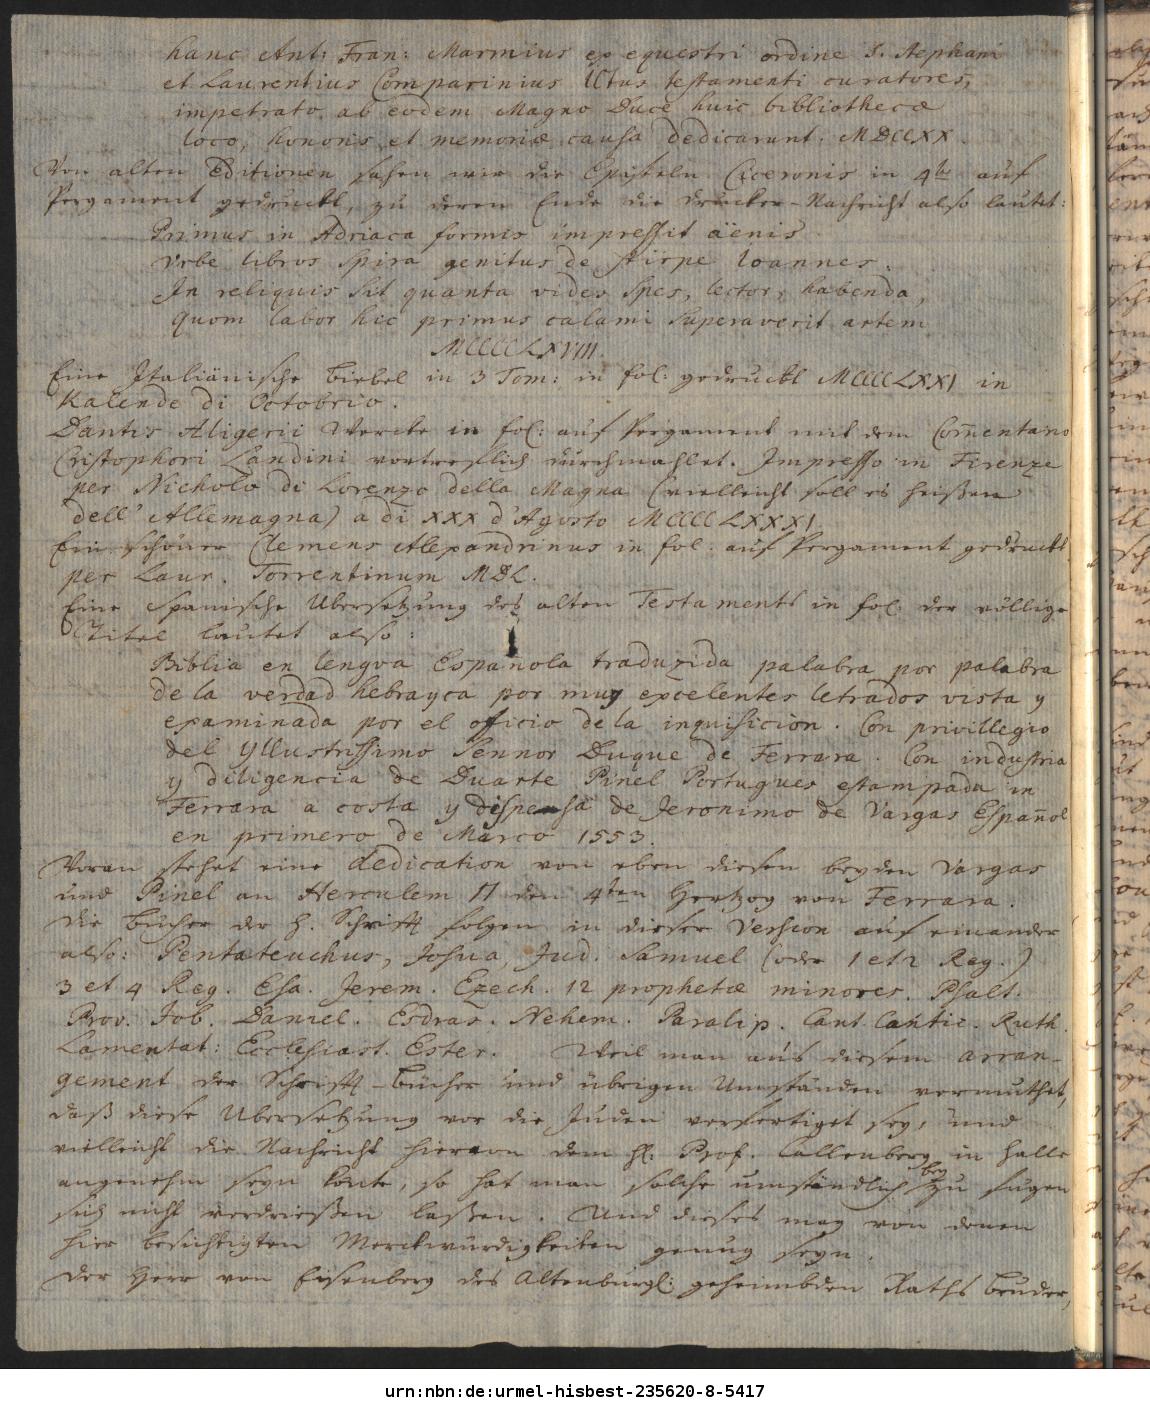 hanc Ant: Fran: Marmius ex equestri ordine S. Stephani
et Laurentius Comparinius ICtus testamenti curatores,
impetrato ab eodem Magno Duce huic bibliothecæ
loco, honoris et memoriæ causa dedicarunt. MDCCXX.
Von alten Editionen sahen wir die Episteln Ciceronis in 4to auf
Pergament gedruckt, zu deren Ende die Drucker-Nachricht also lautet:
Primus in Adriaca formis impressit aënis
Vrbe libros Spira genitus de stirpe Ioannes.
In reliquis sit quanta vides spes, lector, habenda,
Quom labor hic primus calami superaverit artem
MCCCCLXVIIII.
Eine Italiänische Biebel in 3 Tom: in fol: gedruckt MCCCCLXXI in
Kalende di Octobrio.
Dantis Aligerii Wercke in fol: auf Pergament mit dem Com̅entario
Cristophori Landini vortreflich durchmahlet. Impresso in Firenze
per Nicholo di Lorenzo della Magna (vielleicht soll es heißen
dell' Allemagna) a di XXX d'Agosto MCCCCLXXXI
Ein schöner Clemens Alexandrinus in fol: auf Pergament gedruckt
per Laur. Torrentinum MDL.
Eine Spanische Ubersetzung des alten Testaments in fol. der völlige
Titel lautet also:
Biblia en lengva Española traduzida palabra por palabra
de la verdad hebrayca por muy excelentes letrados vista y
examinada por el officio de la inquisicion. Con privillegio
del Yllustrissimo Sennor Duque de Ferrara. Con industria
y diligencia de Duarte Pinel Portugues estampada in
Ferrara a costa y dispensa de Jeronimo de Vargas Español
en primero de Março 1553.
Voran stehet eine dedication von eben diesen beyden Vargas
und Pinel an Herculem II den 4ten Hertzog von Ferrara.
Die Bücher der H. Schrifft folgen in dieser Version auf einander
also: Pentateuchus, Josua, Jud. Samuel (oder 1 et 2 Reg.)
3 et 4 Reg. Esa. Jerem. Ezech. 12 prophetæ minores. Psalt.
Prov. Job. Daniel. Esdras. Nehem. Paralip. Cant. Cantic. Ruth.
Lamentat: Ecclesiast. Ester. Weil man aus diesem arran-
gement der Schrifft-Bücher und übrigen Umständen vermuthet,
daß diese Ubersetzung vor die Juden verfertiget sey, und
vielleicht die Nachricht hiervon dem H. Prof. Callenberg in Halle
angenehm seyn könte, so hat man solche umständlich beyzufügen
sich nicht verdrießen laßen. Und dieses mag von denen
hier besichtigten Merckwürdigkeiten genug seyn.
Der Herr von Eisenberg des Altenburgl: geheimbden Raths bruder,
urn:nbn:de:urmel-hisbest-235620-8-5417